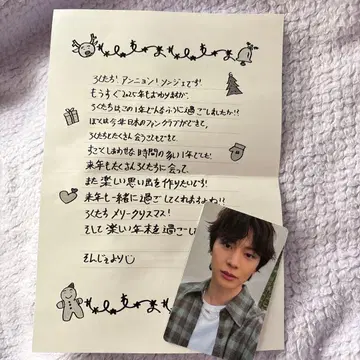 ろくたち、アンニョン！ソンジェです！
もうすぐ2025年もおわりますが、
ろくたちはこの1年どんなふうに過ごしましたか!?
ぼくは今年日本のファンクラブができて、
ろくたちとたくさん会うこともできて、
すごくしあわせな時間の多い1年でした。
来年もたくさんろくたちに会って、
また楽しい思い出を作りたいです！
来年も一緒に過ごしてくれますよね!?
ろくたち メリークリスマス！
そして楽しい年末を過ごし
そんじぇより